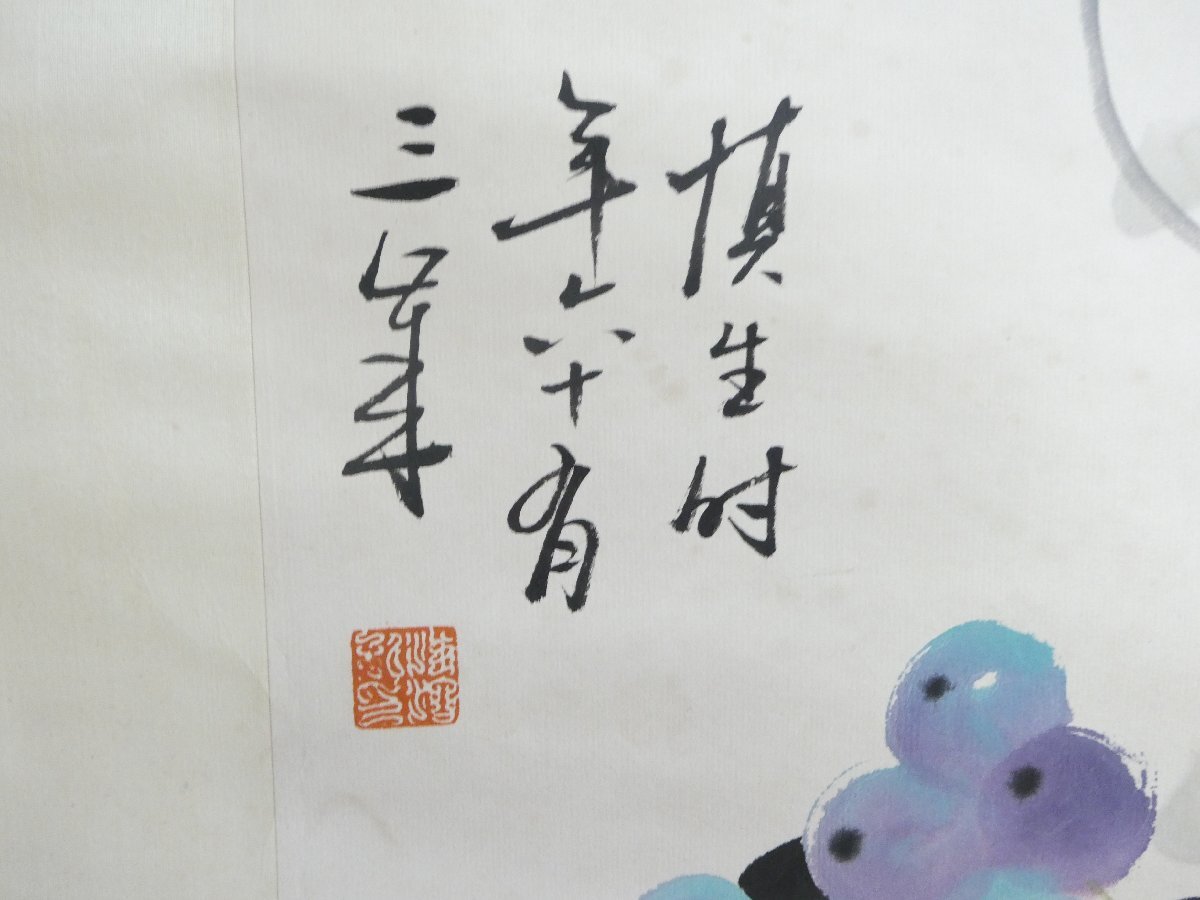 慎生时
年六十有
三